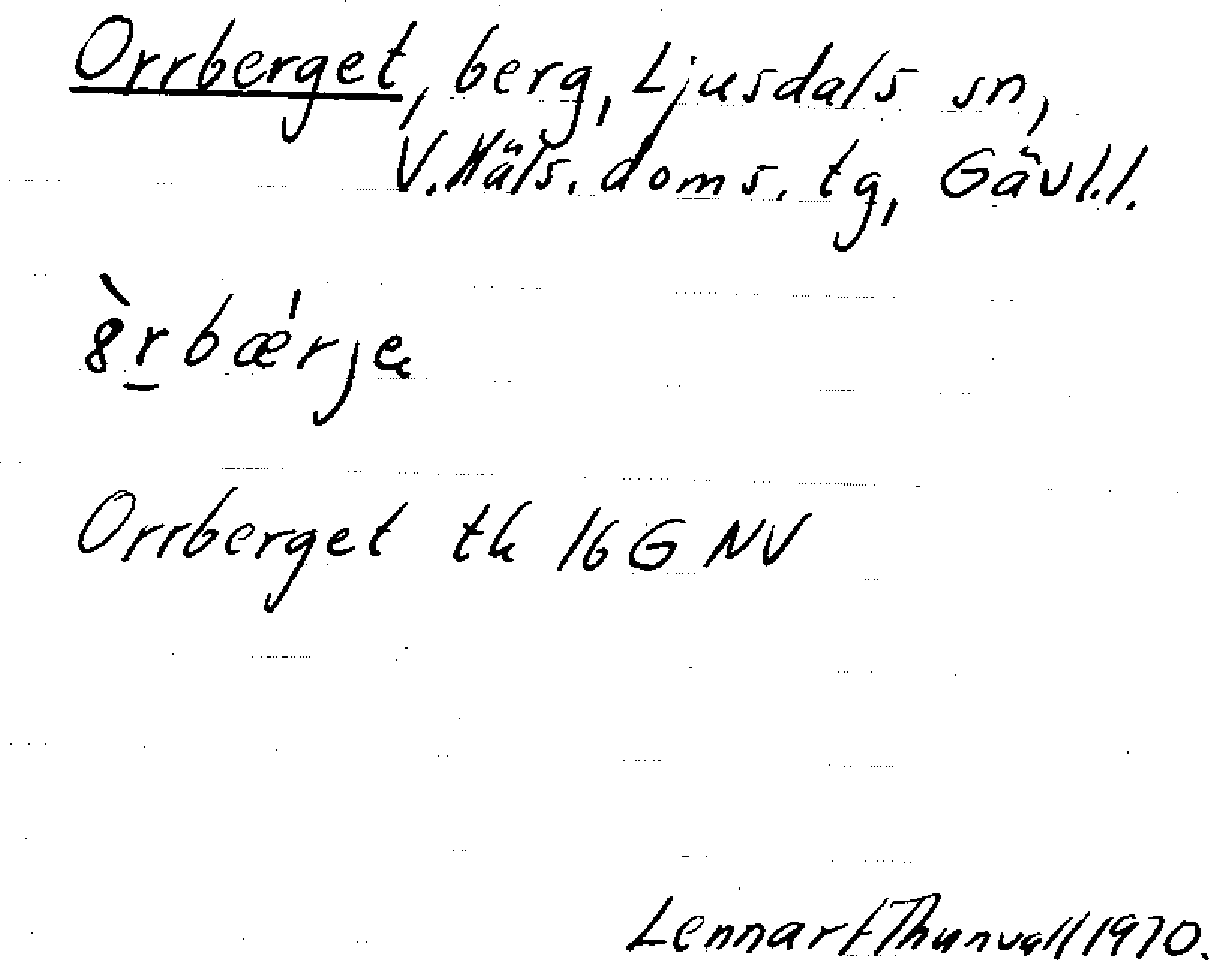 Orrberget, berg, Ljusdals sn,
V. Häls. doms. tg, Gävl.l.
Orrberget tk 16 G NV
Lennart Thunvall 1970.